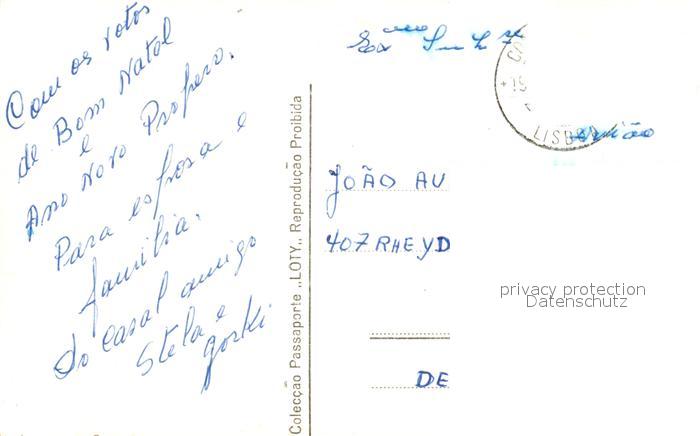 Com os votos
de Bom Natal
e
Ano Novo Prospero.
Para esposa e
familia.
Do casal amigo
Stela e
gorki
Colecção Passaporte „LOTY„ Reprodução Proibida
LISB
avião
JOÃO AU
407 RHEYD
privacy protection
Datenschutz
DE